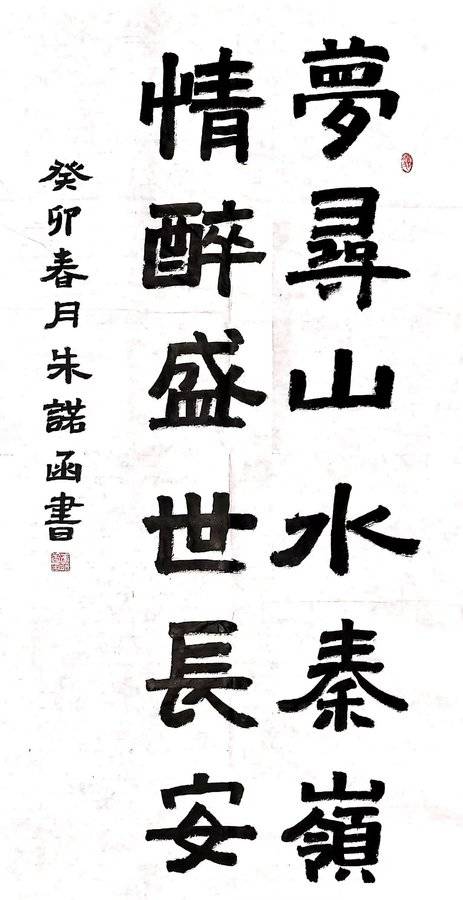 夢尋山水秦嶺
情醉盛世長安
癸卯春月朱諾函書